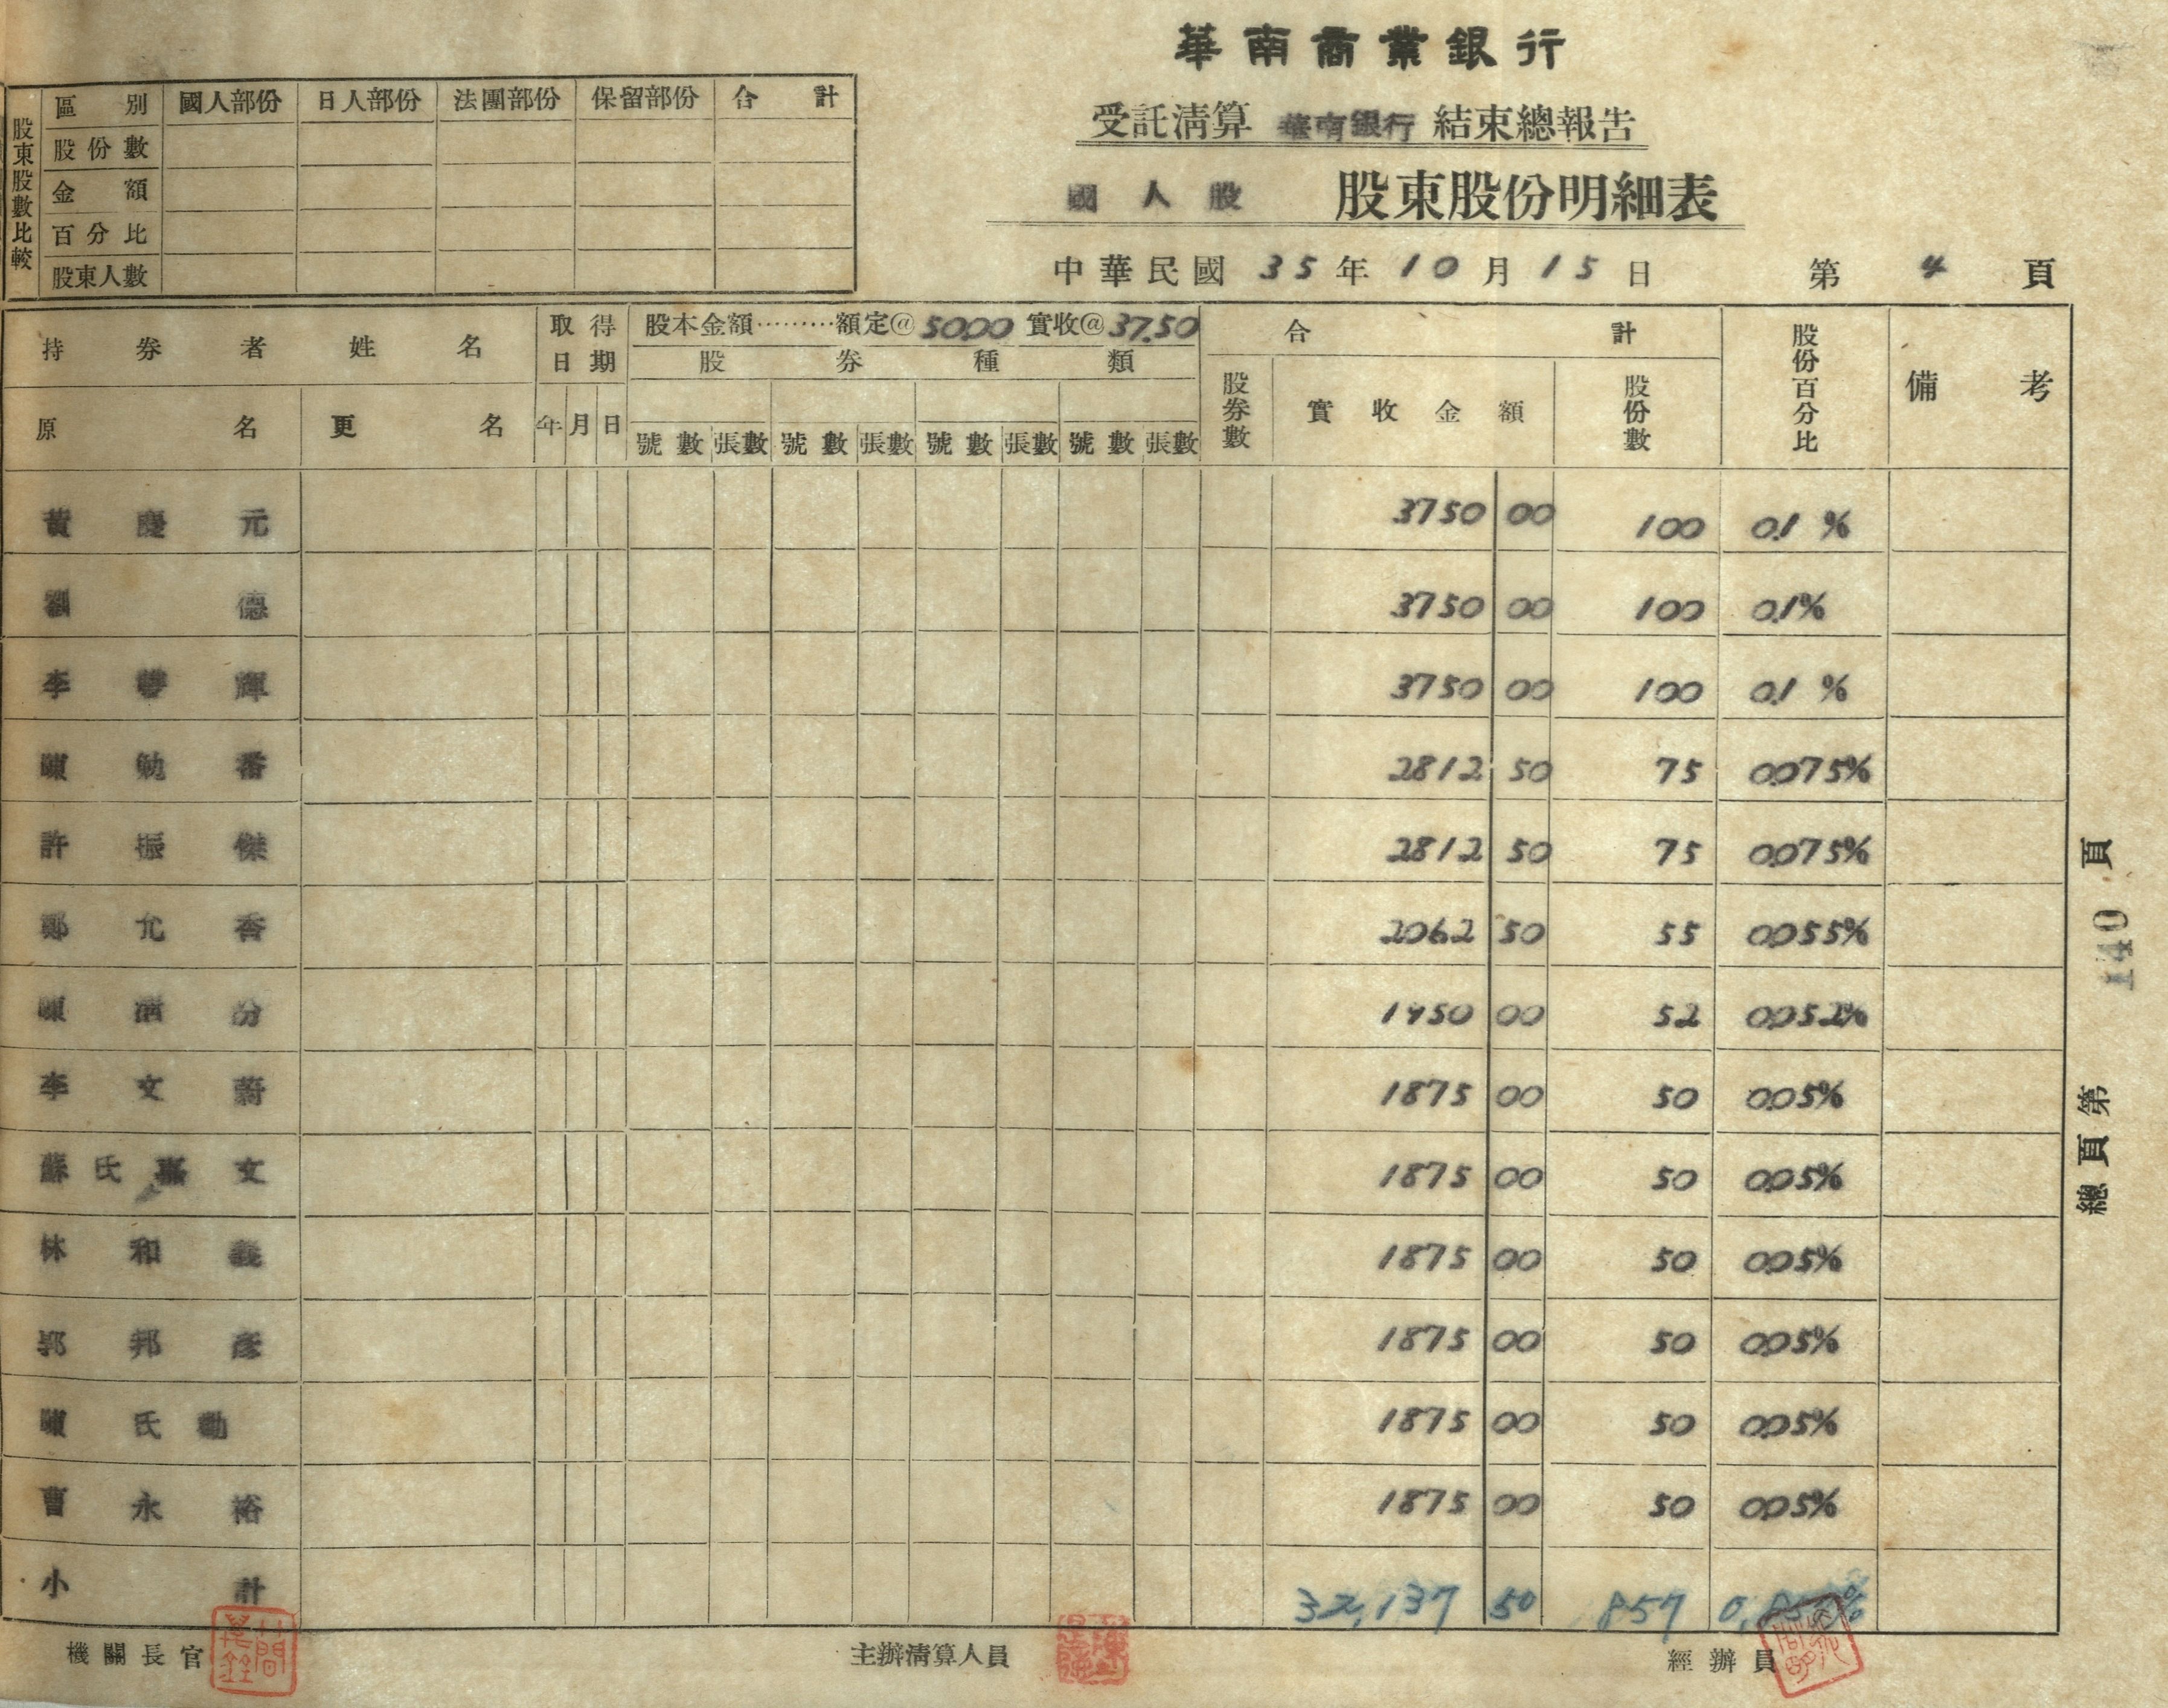 華南商業銀行
受託清算 華南銀行 結束總報告
國人股 股東股份明細表
中華民國 35 年 10 月 15 日 第 4 頁
股東股數比較
區別 國人部份 日人部份 法團部份 保留部份 合計
股份數
金額
百分比
股東人數
持券者姓名 取得日期 股本金額………額定@5000 實收@37.50 合計 股份百分比 備考
股券種類
原名 更名 年 月 日 股券數 實收金額 股份數
號數 張數 號數 張數 號數 張數 號數 張數
黃慶元 3750 00 100 0.1 %
劉德 3750 00 100 0.1%
李輝 3750 00 100 0.1 %
陳勉番 2812 50 75 0.075%
許振傑 2812 50 75 0.075%
鄭允香 2062 50 55 0.055%
陳汾 1950 00 52 0.052%
李文蔚 1875 00 50 0.05%
蘇氏嘉文 1875 00 50 0.05%
林和義 1875 00 50 0.05%
郭邦彥 1875 00 50 0.05%
陳氏勤 1875 00 50 0.05%
曹永裕 1875 00 50 0.05%
小計 32,137 50 857 0.857%
機關長官 主辦清算人員 經辦員
總頁第 140 頁